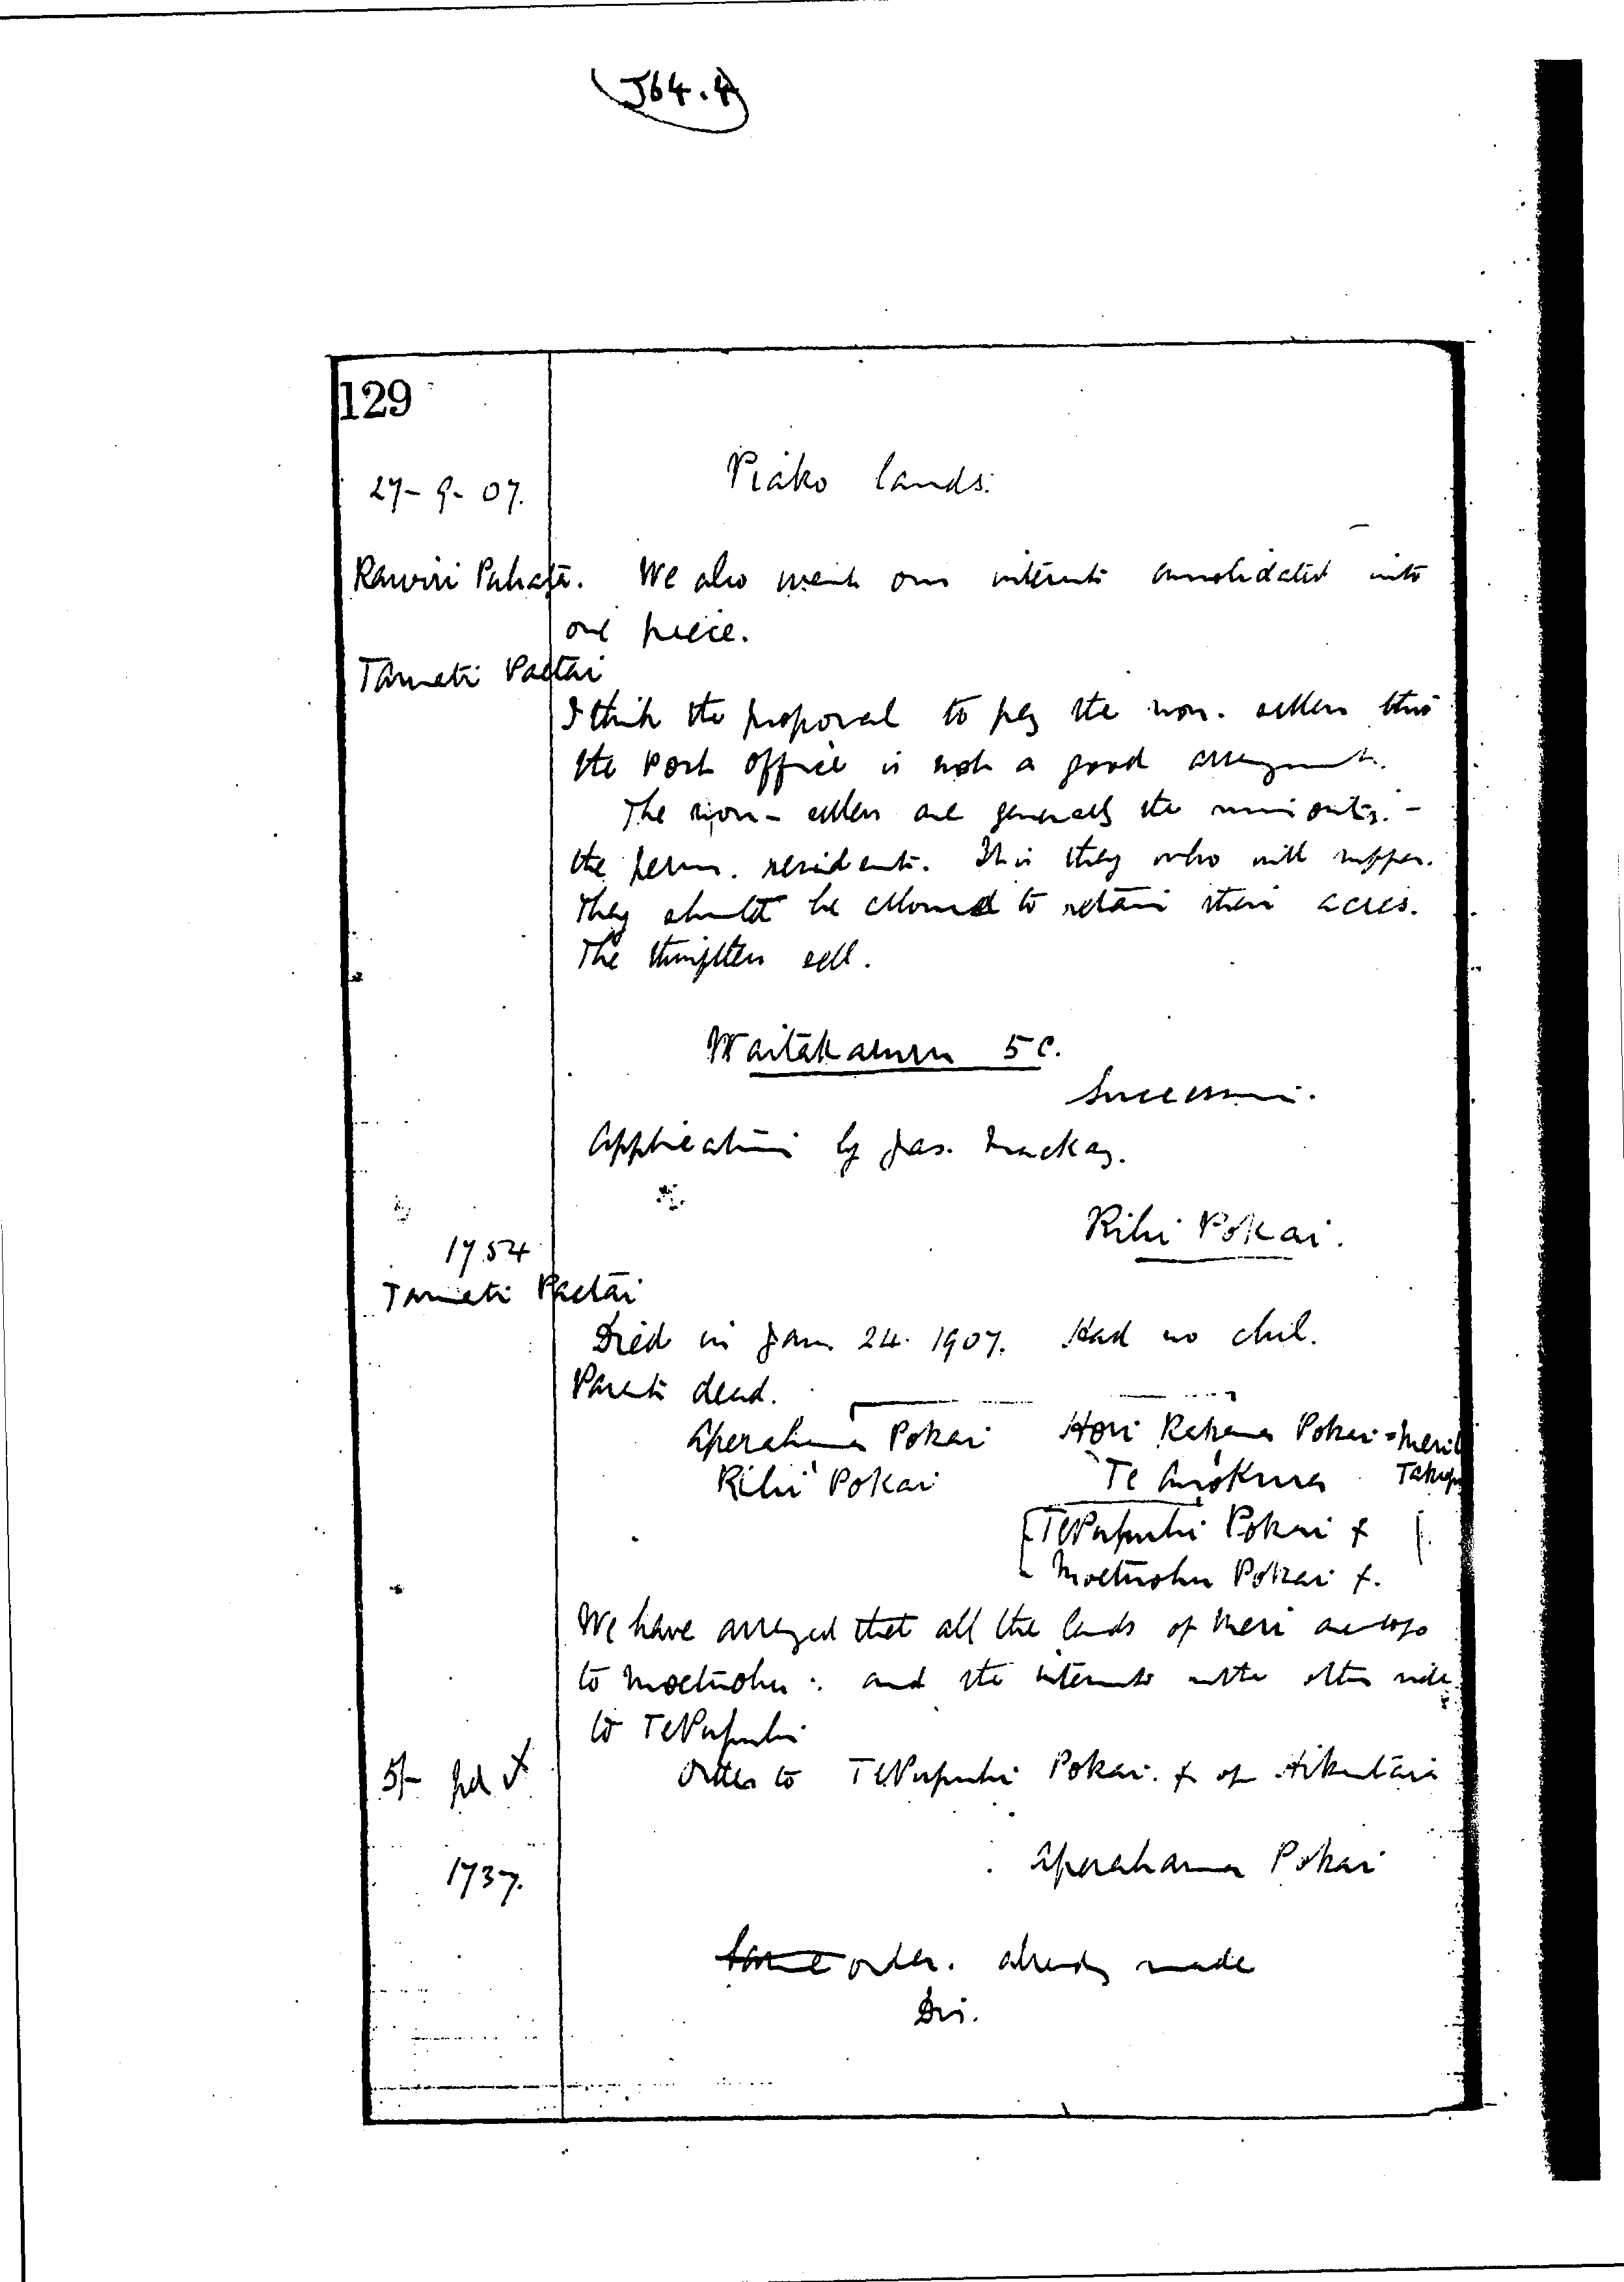 J64.4
129
27-9-07.
Piako lands.
Rawiri Pahata. We also want our interests consolidated into
one piece.
Tameti Paetai
I think the proposal to pay the non-sellers thro
the Post Office is not a good arrangement.
The non-sellers are generally the minority. -
the perm. residents. It is they who will suffer.
They should be allowed to retain their acres.
The thriftless sell.
Waitakaruru 5C.
Succession.
Application by Jas. Mackay.
Rihi Pokai.
1754
Tameti Paetai
Died in Jan. 24. 1907. Had no chil.
Parents dead.
Aperahama Pokai Hori Pokai = Meri
Rihi Pokai Te
Te Puhi Pokai f
Pokai f.
We have arranged that all the lands of Meri
to : and the interests on the other side
to
5/- pd
Order to Pokai. f of Hikutaia
1737.
Aperahama Pokai
Same order. already made
Dis.